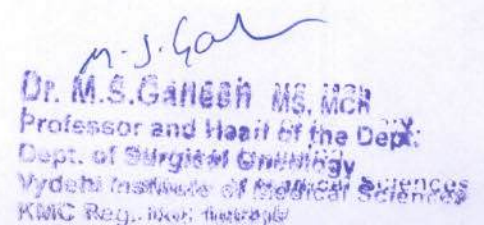 M.S.Ga
Dr. M.S.Ganesh MS, MCh
Professor and Head of the Dept:
Dept. of Surgical Oncology
Vydehi Institute of Medical Sciences
KMC Reg.